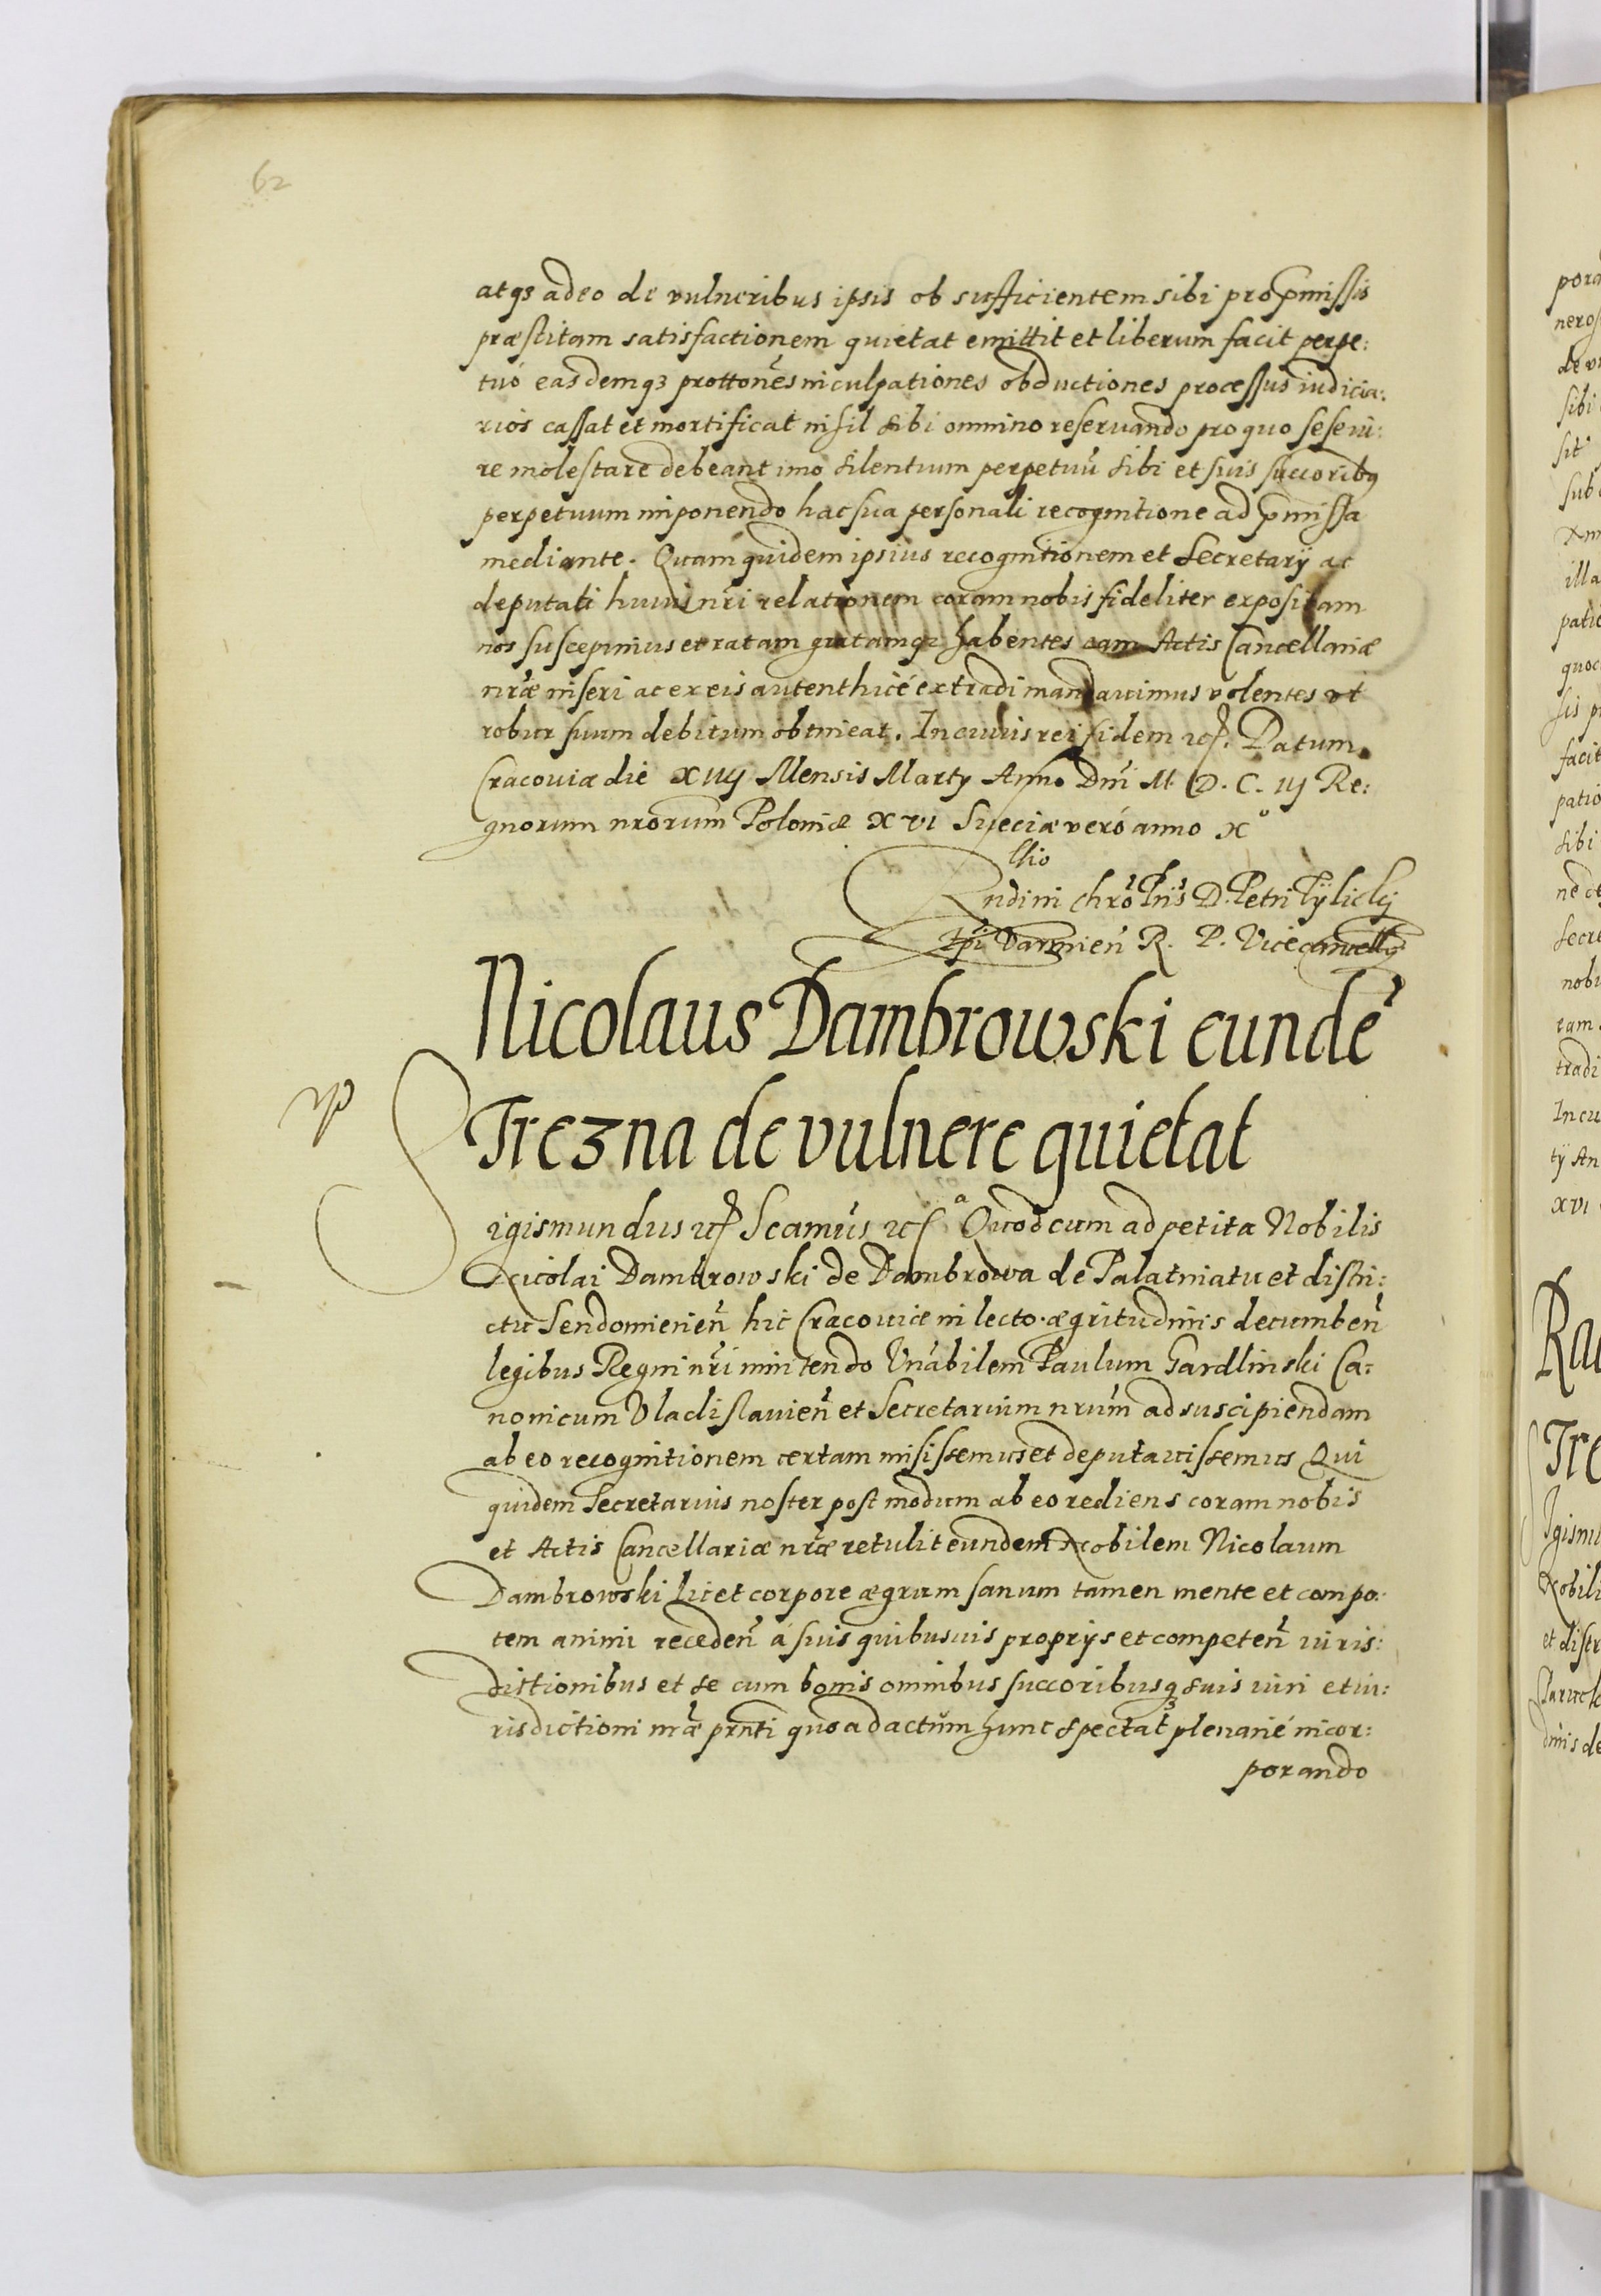 62
atq3 adeo de vulneribus ipsis ob sufficientem sibi pro pmissis
præstitam satisfactionem quietat emittit et liberum facit perpe:
tuó easdemq3 prottones inculpationes obductiones processus iudicia:
rios cassat et mortificat nihil sibi omnino reseruando pro quo se seui:
re molestare debeant imo silentium perpetuū sibi et suis succoribus
perpetuum imponendo hac sua personali recognitione ad pmissa
mediante. Quam quidem ipsius recognitionem et Secretarij ac
deputati huius nri relationem coram nobis fideliter expositam
nos suscepimus et ratam gratamq3 habentes eam Actis Cancellariæ
nræ inseri ac ex eis autenthicé extradi mandauimus volentes vt
robur suum debitum obtineat. In cuius rei fidem etc. Datum
Cracoviæ die XIIIJ Mensis Martij Anno Dni M. D. C. IIJ Re:
gnorum nrorum Poloniæ XVI Sueciæ veró anno X°
llio
Rndini Chro Pris D. Petri Tÿlickj
Epi Varmien R. P. Vicecancellarij
Nicolaus Dambrowski eundē
Trezna de vulnere quietat
Sigismundus etc Scamus etc a Quod cum ad petita Nobilis
Nicolai Dambrowski de Dambrowa de Palatniatu et distri:
ctu Sendomirien hic Cracoviæ in lecto ægritudinis decumben
legibus Regni nri imitendo Vnabilem Paulum Gardlinski Ca:
nonicum Vladislauien et Secretarium nrum ad suscipiendam
ab eo recognitionem certam misissemus et deputauissemus Qui
quidem Secretarius noster post modum ab eo rediens coram nobis
et Actis Cancellariæ nræ retulit eundem Nobilem Nicolaum
Dambrowski licet corpore ægrum sanum tamen mente et compo:
tem animi receden á suis quibusuis proprijs et competen iuris:
dictionibus et se cum bonis omnibus succoribusq3 suis iuri et iu:
risdictioni nræ prnti quo ad actum hunc spectat plenarié incor:
porando